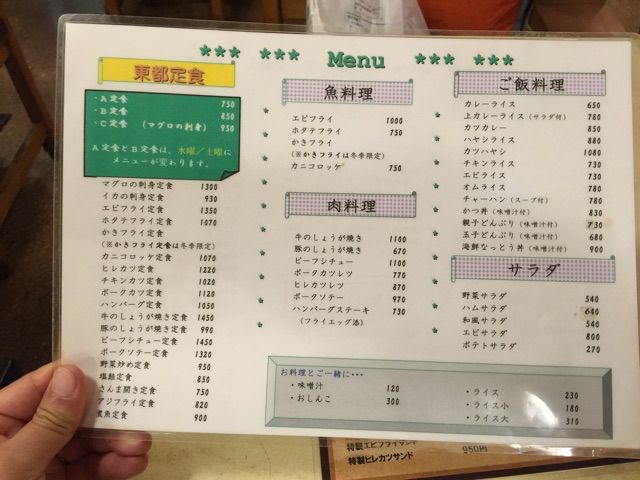 *** *** Menu *** ***
東都定食
・A定食 750
・B定食 850
・C定食 (マグロの刺身) 950
A定食とB定食は、水曜／土曜に
メニューが変わります。
マグロの刺身定食 1300
イカの刺身定食 930
エビフライ定食 1350
ホタテフライ定食 1070
かきフライ定食
(※かきフライ定食は冬季限定)
カニコロッケ定食 1070
ヒレカツ定食 1220
チキンカツ定食 1020
ポークカツ定食 1120
ハンバーグ定食 1050
牛のしょうが焼き定食 1450
豚のしょうが焼き定食 990
ビーフシチュー定食 1450
ポークソテー定食 1320
野菜炒め定食 950
塩鮭定食 850
さんま開き定食 750
アジフライ定食 820
煮魚定食 900
魚料理
エビフライ 1000
ホタテフライ 750
かきフライ
(※かきフライは冬季限定)
カニコロッケ 750
肉料理
牛のしょうが焼き 1100
豚のしょうが焼き 670
ビーフシチュー 1100
ポークカツレツ 770
ヒレカツレツ 870
ポークソテー 970
ハンバーグステーキ 730
(フライエッグ添)
ご飯料理
カレーライス 650
上カレーライス (サラダ付) 780
カツカレー 850
ハヤシライス 680
カツハヤシ 1080
チキンライス 730
エビライス 730
オムライス 780
チャーハン (スープ付) 780
かつ丼 (味噌汁付) 830
親子どんぶり (味噌汁付) 730
玉子どんぶり (味噌汁付) 680
海鮮なっとう丼 (味噌汁付) 900
サラダ
野菜サラダ 540
ハムサラダ 640
和風サラダ 540
エビサラダ 800
ポテトサラダ 270
お料理とご一緒に・・・
・味噌汁 120
・おしんこ 300
・ライス 230
・ライス小 180
・ライス大 310
特製エビフライサンド 950円
特製ヒレカツサンド